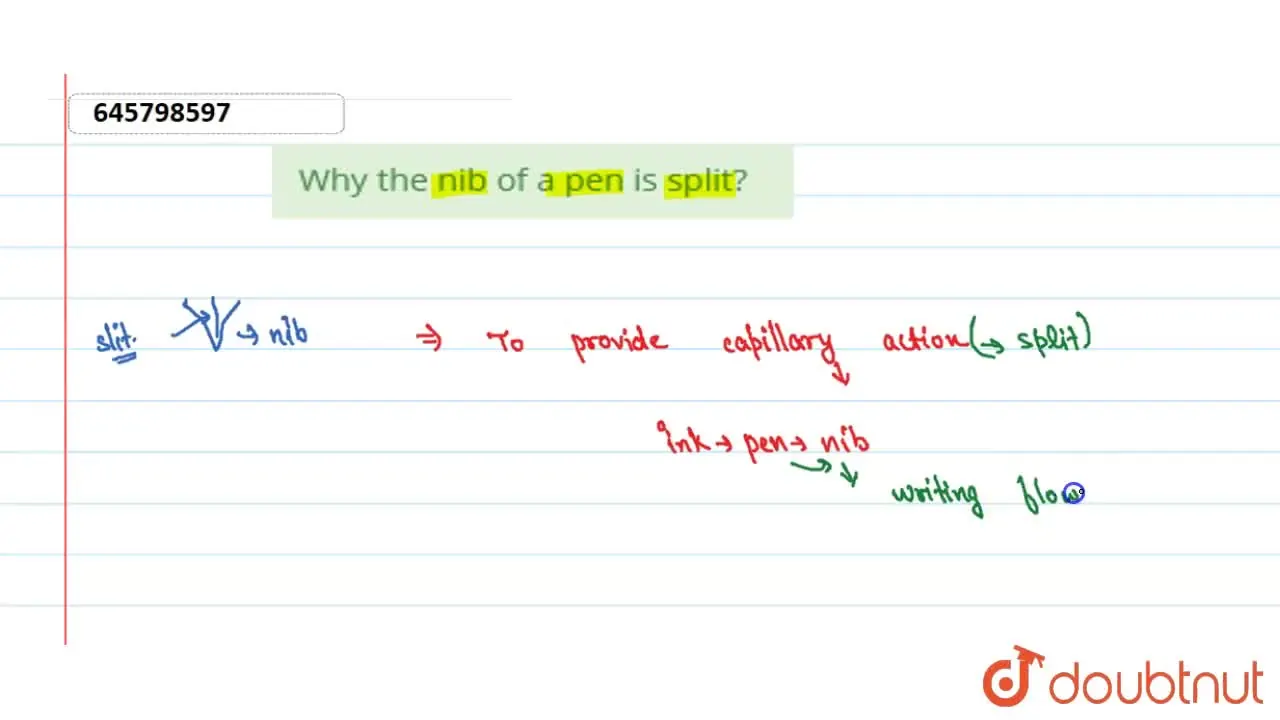 645798597
Why the nib of a pen is split?
slit. → nib ⇒ To provide capillary action (→ split)
ink → pen → nib
writing flow
doubtnut